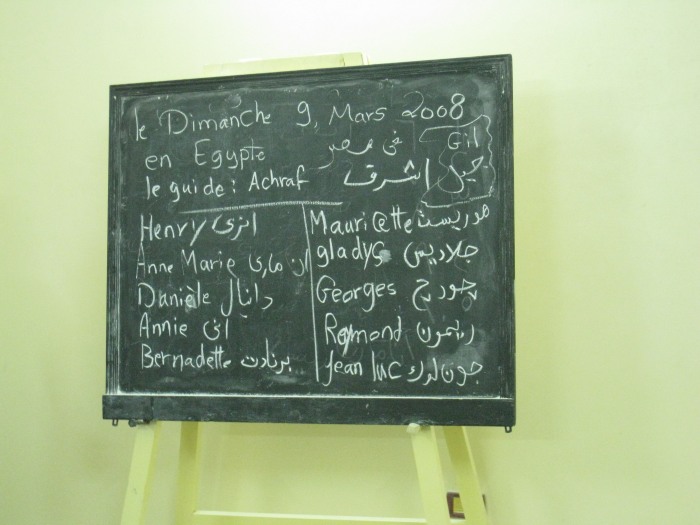 le Dimanche 9, Mars 2008
en Egypte في مصر
Gil
جيل
le guide: Achraf اشرف
Henry انري
Anne Marie ان ماري
Danièle دانيال
Annie اني
Bernadette برنادت
Mauri@tte موريست
gladys جلاديس
Georges جورج
Raymond ريمون
Jean luc جون لوك